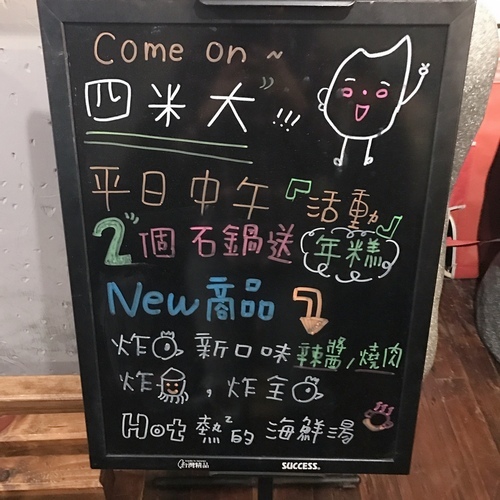 Come on ~
四米大 !!!
平日中午『活動』
2個 石鍋送 年糕
New商品
炸 新口味 辣醬/燒肉
炸 , 炸全
Hot 熱的 海鮮湯
台灣精品 SUCCESS.